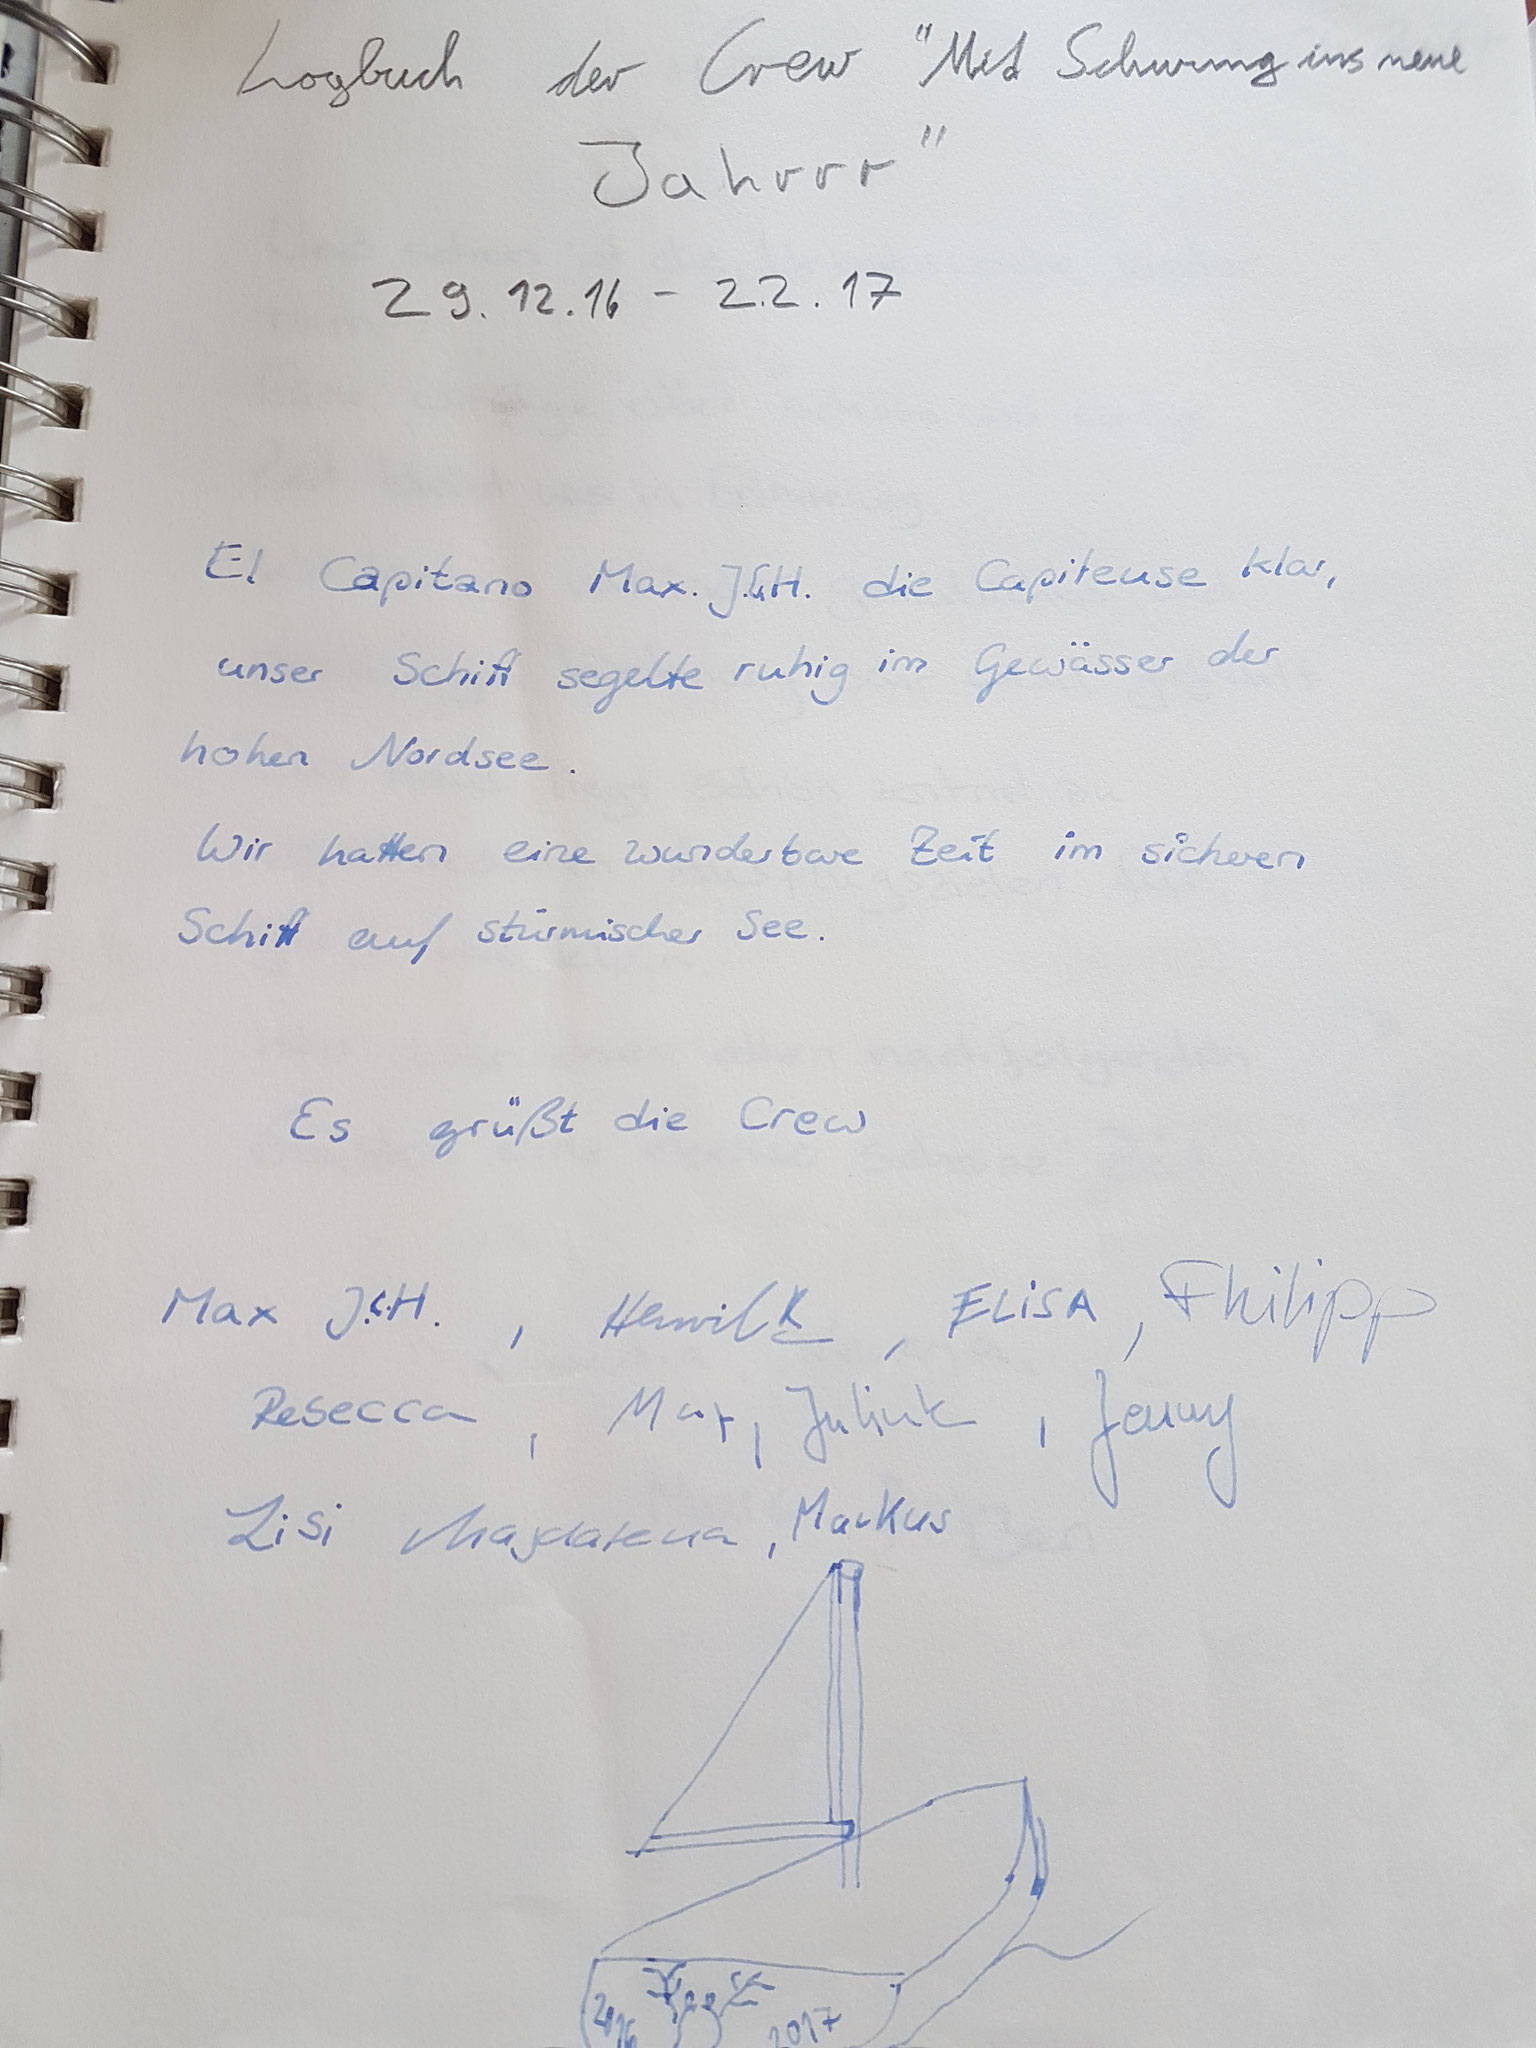 Logbuch der Crew "Mit Schwung ins neue
Jahrrr"
29.12.16 - 2.2.17
El Capitano Max. J.&H. die Capiteuse klar,
unser Schiff segelte ruhig im Gewässer der
hohen Nordsee.
Wir hatten eine wunderbare Zeit im sicheren
Schiff auf stürmischer See.
Es grüßt die Crew
Max J.&H. , , ELiSA , Philipp
Rebecca , Max, , Jenny
Lisi Magdalena, Markus
2016 2017